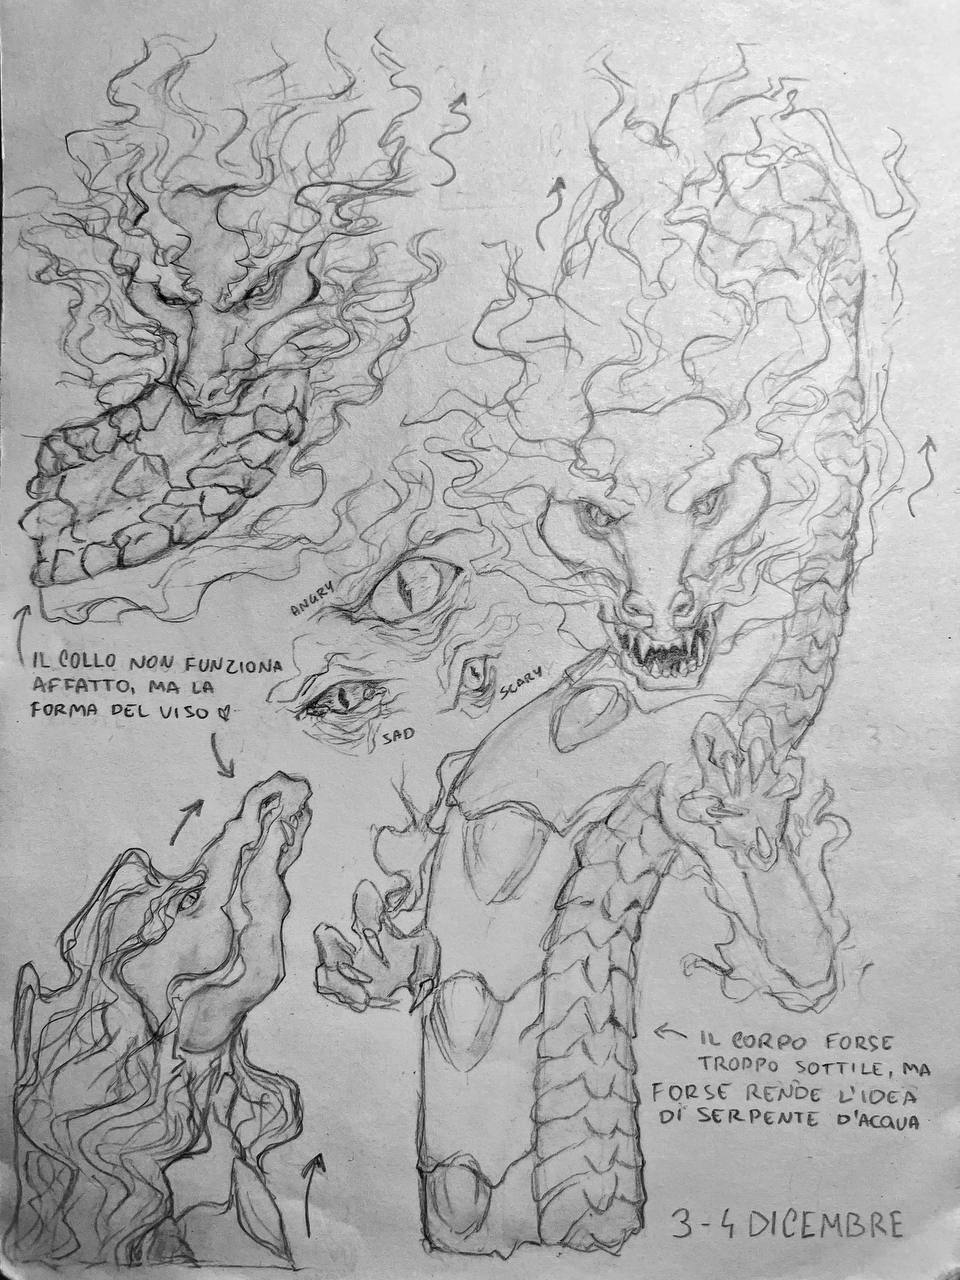 ANGRY
SCARY
SAD
IL COLLO NON FUNZIONA
AFFATTO, MA LA
FORMA DEL VISO
IL CORPO FORSE
TROPPO SOTTILE, MA
FORSE RENDE L'IDEA
DI SERPENTE D'ACQUA
3-4 DICEMBRE